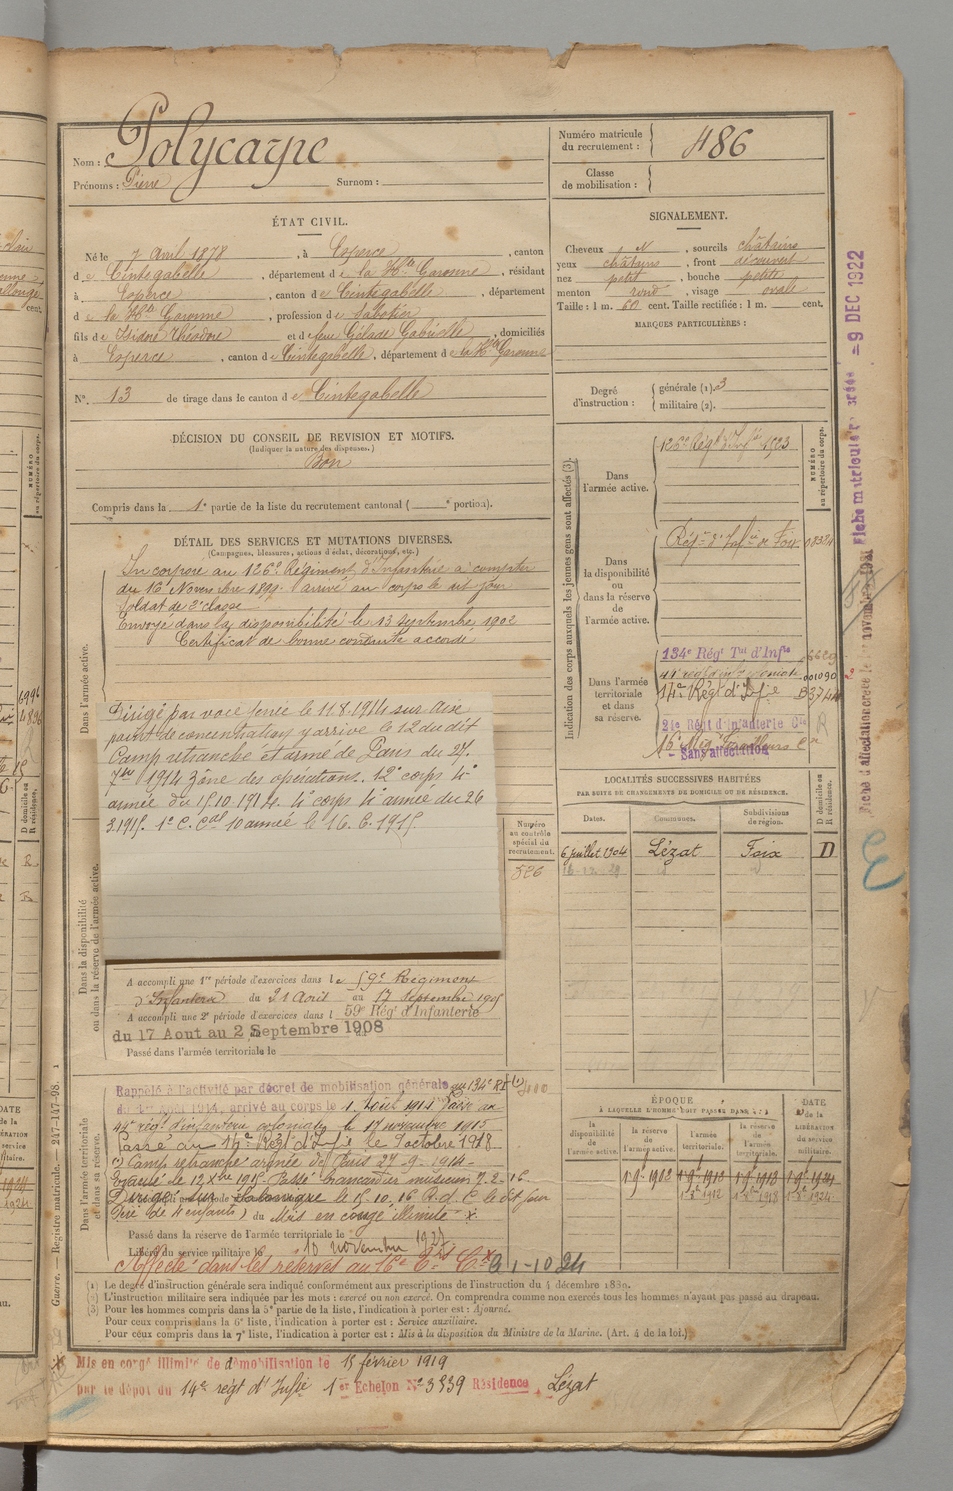 Nom : Polycarpe
Prénoms : Pierre Surnom :
Numéro matricule du recrutement : 486
Classe de mobilisation :
ÉTAT CIVIL.
Né le 7 Avril 1878, à Esperce, canton
de Cintegabelle, département de la Hte Garonne, résidant
à Esperce, canton de Cintegabelle, département
de la Hte Garonne, profession de Sabotier
fils de Isidore Théodore et de feue Gélade Gabrielle, domiciliés
à Esperce, canton de Cintegabelle, département de la Hte Garonne
N°. 13 de tirage dans le canton de Cintegabelle
SIGNALEMENT.
Cheveux N, sourcils châtains
yeux châtains, front découvert
nez petit, bouche petite
menton rond, visage ovale
Taille : 1 m. 60 cent. Taille rectifiée : 1 m. cent.
MARQUES PARTICULIÈRES :
Degré d'instruction : générale (1). 3
militaire (2).
DÉCISION DU CONSEIL DE REVISION ET MOTIFS.
(Indiquer la nature des dispenses.)
Bon
Compris dans la 1e partie de la liste du recrutement cantonal ( e portion).
DÉTAIL DES SERVICES ET MUTATIONS DIVERSES.
(Campagnes, blessures, actions d'éclat, décorations, etc.)
Dans l'armée active.
Incorporé au 126e Régiment d'Infanterie à compter
du 16 Novembre 1899 arrivé au corps le dit jour
Soldat de 2e classe
Envoyé dans la disponibilité le 13 Septembre 1902
Certificat de bonne conduite accordé
Dirigé par voie ferrée le 11.8.1914 sur
point de concentration y arrivé le 12 du dit
Camp retranché et armé de Paris du 27.
7bre 1914 Zône des opérations. 12e corps 4e
armée du 15.10.1914. 4e corps 4e année du 26
3.1915. 1e C. Cal 10 année le 16. 6. 1915.
Dans la disponibilité ou dans la réserve de l'armée active.
Numéro au contrôle spécial du recrutement.
526
A accompli une 1re période d'exercices dans le 59e Régiment
d'Infanterie du 21 Août au 17 Septembre 1905
A accompli une 2e période d'exercices dans l 59e Régt d'Infanterie
du 17 Aout au 2 Septembre 1908
Passé dans l'armée territoriale le
Dans l'armée territoriale et dans sa réserve.
Rappelé à l'activité par décret de mobilisation générale au 134e RI (1)
du 1er Août 1914, arrivé au corps le 1 Août 1914 Passé au
44e régt d'infanterie coloniale le 17 novembre 1915
Passé au 14e Régt d'Infie le 9 octobre 1918
(1) Camp retranché armée de Paris 27-9-1914 -
Evacué le 12 Xbre 1915. Passé brancardier musicien 7-2-16.
Dirigé sur Salonique le 15.10.16
Père de 4 enfants) du Mis en congé illimité x
Passé dans la réserve de l'armée territoriale le
Libéré du service militaire le 10 novembre 1927.
Affecté dans les réserves au 16e 1-10-24
Indication des corps auxquels les jeunes gens sont affectés (3).
NUMÉRO au répertoire du corps.
Dans l'armée active.
126e Régt d'Infie 1823
Dans la disponibilité ou dans la réserve de l'armée active.
Régt d'Infie de Foix 08324
Dans l'armée territoriale et dans sa réserve.
134e Régt Tal d'Infie
44e 001090
14e Régt d'Infie
24e Régt d'Infanterie Cle
Sans affectation
LOCALITÉS SUCCESSIVES HABITÉES
PAR SUITE DE CHANGEMENTS DE DOMICILE OU DE RÉSIDENCE.
Dates. Communes. Subdivisions de région. D domicile ou R résidence.
6 juillet 1904 Lézat Foix D
ÉPOQUE
À LAQUELLE L'HOMME DOIT PASSER DANS :
DATE de la LIBÉRATION du service militaire.
la disponibilité de l'armée active. la réserve de l'armée active. l'armée territoriale. la réserve de l'armée territoriale.
1 9bre 1902
1 8bre 1912 1 8bre 1918 1 8bre 1924
(1) Le degré d'instruction générale sera indiqué conformément aux prescriptions de l'instruction du 4 décembre 1889.
(2) L'instruction militaire sera indiquée par les mots : exercé ou non exercé. On comprendra comme non exercés tous les hommes n'ayant pas passé au drapeau.
(3) Pour les hommes compris dans la 5e partie de la liste, l'indication à porter est : Ajourné.
Pour ceux compris dans la 6e liste, l'indication à porter est : Service auxiliaire.
Pour ceux compris dans la 7e liste, l'indication à porter est : Mis à la disposition du Ministre de la Marine. (Art. 4 de la loi.)
x Mis en congé illimité de démobilisation le 15 février 1919
par le dépôt du 14e régt d'Infie 1er Echelon No 3339 Résidence, Lézat
Guerre. — Registre matricule. 247-147-98.
= 9 DEC 1922